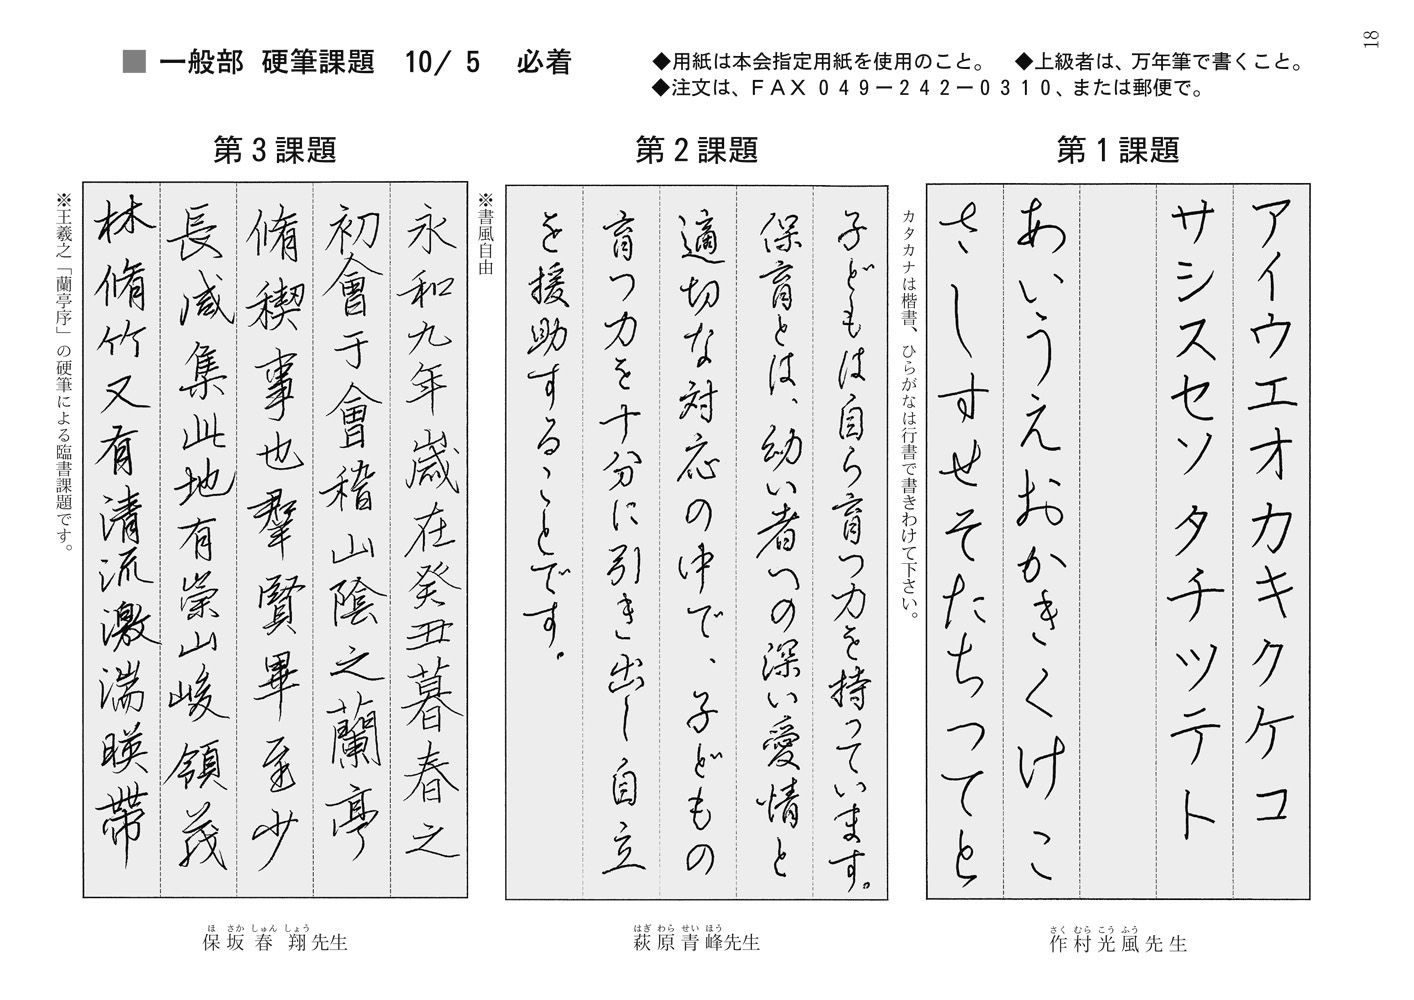 18
■ 一般部 硬筆課題 10/ 5 必着
◆用紙は本会指定用紙を使用のこと。 ◆上級者は、万年筆で書くこと。
◆注文は、ＦＡＸ０４９－２４２－０３１０、または郵便で。
第1課題
アイウエオカキクケコ
サシスセソタチツテト
あいうえおかきくけこ
さしすせそたちつてと
カタカナは楷書、ひらがなは行書で書きわけて下さい。
作村光風先生
さく むら こう ふう
第2課題
子どもは自ら育つ力を持っています。
保育とは、幼い者への深い愛情と
適切な対応の中で、子どもの
育つ力を十分に引き出し自立
を援助することです。
※書風自由
萩原青峰先生
はぎ わら せい ほう
第3課題
永和九年歳在癸丑暮春之
初會于會稽山陰之蘭亭
脩稧事也羣賢畢至少
長咸集此地有崇山峻領茂
林脩竹又有清流激湍暎帶
※王羲之「蘭亭序」の硬筆による臨書課題です。
保坂春翔先生
ほ さか しゅん しょう